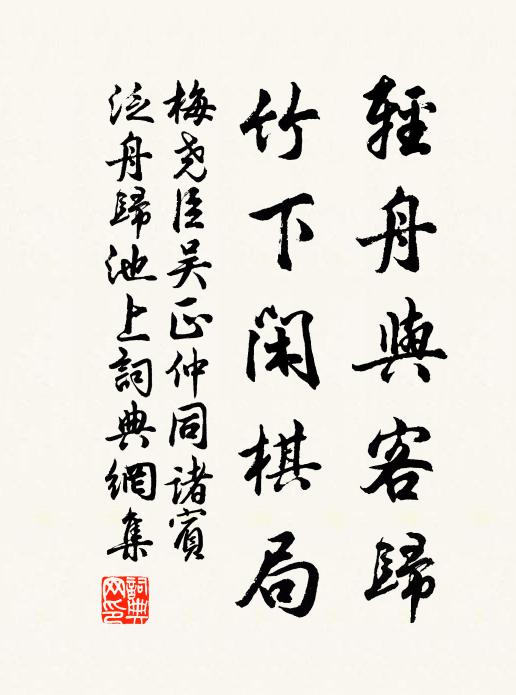 輕舟與客歸
竹下閑棋局
梅堯臣吴正仲同諸賓
泛舟歸池上詞典網集
詞典網印